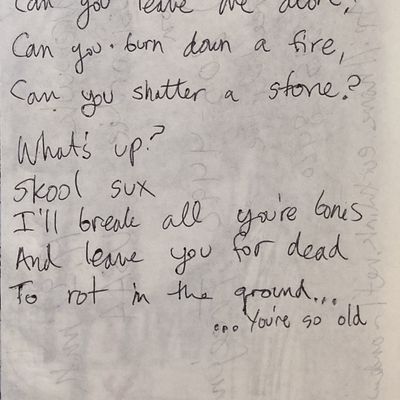 Can you leave me alone,
Can you burn down a fire,
Can you shatter a stone?
What's up?
Skool sux
I'll break all you're bones
And leave you for dead
To rot in the ground...
...You're so old